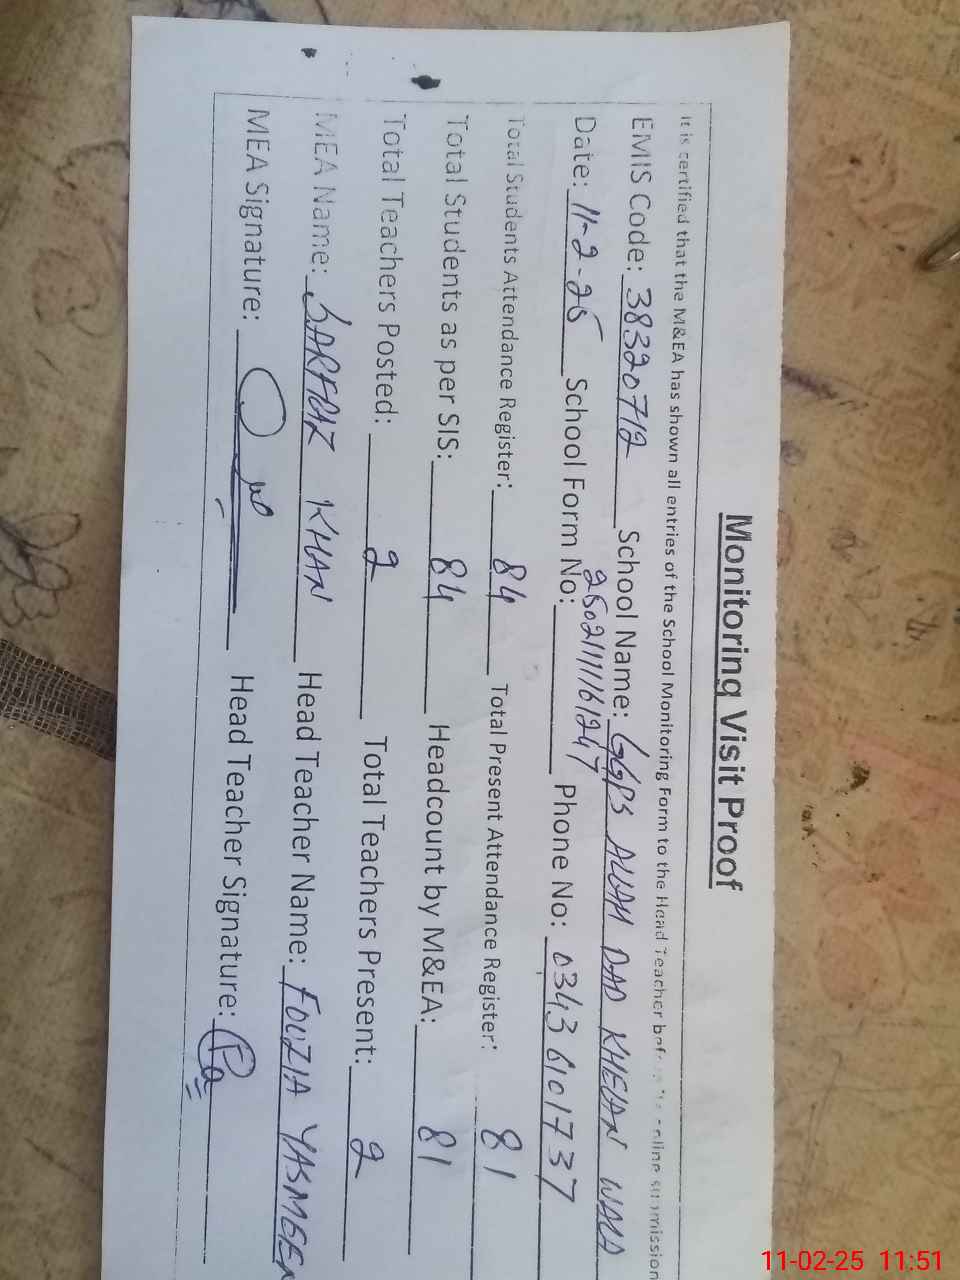 Monitoring Visit Proof
It is certified that the M&EA has shown all entries of the School Monitoring Form to the Head Teacher before online submission
EMIS Code: 38320712 School Name: GGPS ALLAH DAD KHELAN WALA
Date: 11-2-25 School Form No: 2502111161247 Phone No: 03436101737
Total Students Attendance Register: 84 Total Present Attendance Register: 81
Total Students as per SIS: 84 Headcount by M&EA: 81
Total Teachers Posted: 2 Total Teachers Present: 2
MEA Name: SARFRAZ KHAN Head Teacher Name: FOUZIA YASMEEN
MEA Signature: Head Teacher Signature:
11-02-25 11:51